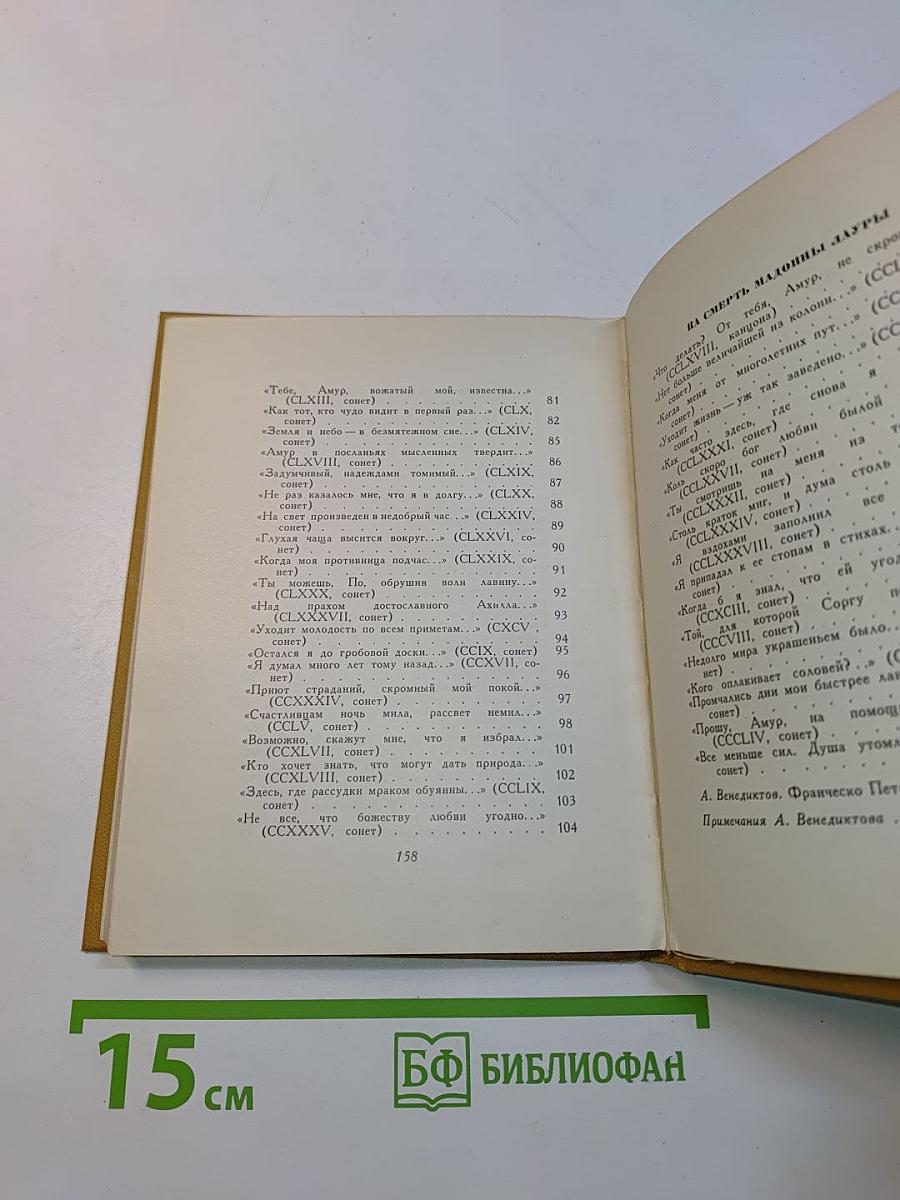 «Тебе, Амур, вожатый мой, известна. . .»
(CLXIII, сонет) . . . . . . . . . . . 81
«Как тот, кто чудо видит в первый раз. . .» (CLX,
сонет) . . . . . . . . . . . . . . . 82
«Земля и небо — в безмятежном сне. . .» (CLXIV,
сонет) . . . . . . . . . . . . . . . 85
«Амур в посланьях мысленных твердит. . .»
(CLXVIII, сонет) . . . . . . . . . . . 86
«Задумчивый, надеждами томимый. . .» (CLXIX,
сонет) . . . . . . . . . . . . . . . 87
«Не раз казалось мне, что я в долгу. . .» (CLXX,
сонет) . . . . . . . . . . . . . . . 88
«На свет произведен в недобрый час. . .» (CLXXIV,
сонет) . . . . . . . . . . . . . . . 89
«Глухая чаща высится вокруг. . .» (CLXXVI, со-
нет) . . . . . . . . . . . . . . . . 90
«Когда моя противница подчас. . .» (CLXXIX, со-
нет) . . . . . . . . . . . . . . . . 91
«Ты можешь, По, обрушив волн лавину. . .»
(CLXXX, сонет) . . . . . . . . . . . 92
«Над прахом достославного Ахилла. . .»
(CLXXXVII, сонет) . . . . . . . . . . 93
«Уходит молодость по всем приметам. . .» (CXCV ,
сонет) . . . . . . . . . . . . . . . 94
«Остался я до гробовой доски. . .» (CCIX, сонет) 95
«Я думал много лет тому назад. . .» (CCXVII, со-
нет) . . . . . . . . . . . . . . . . 96
«Приют страданий, скромный мой покой. . .»
(CCXXXIV, сонет) . . . . . . . . . . 97
«Счастливцам ночь мила, рассвет немил. . .»
(CCLV, сонет) . . . . . . . . . . . . 98
«Возможно, скажут мне, что я избрал. . .»
(CCXLVII, сонет) . . . . . . . . . . 101
«Кто хочет знать, что могут дать природа. . .»
(CCXLVIII, сонет) . . . . . . . . . . 102
«Здесь, где рассудки мраком обуянны. . .» (CCLIX,
сонет) . . . . . . . . . . . . . . . 103
«Не все, что божеству любви угодно. . .»
(CCXXXV, сонет) . . . . . . . . . . 104
158
НА СМЕРТЬ МАДОННЫ ЛАУРЫ
«Что делать? От тебя, Амур, не
(CCLXVIII, канцона) . . . . .
«Нет больше величайшей из колонн. . .»
сонет) . . . . . . . .
«Когда меня от многолетних пут. . .»
сонет) . . . . . . . .
«Уходит жизнь — уж так заведено. . .»
сонет) . . . . . . . .
«Как часто здесь, где снова я
(CCLXXXI, сонет) . . . . .
«Коль скоро бог любви былой
(CCLXXVII, сонет) . . . . .
«Ты смотришь на меня из
(CCLXXXII, сонет) . . . . .
«Столь краток миг, и дума столь
(CCLXXXIV, сонет) . . . . .
«Я вздохами заполнил все
(CCLXXXVIII, сонет) . . . . .
«Я припадал к ее стопам в стихах. . .
сонет) . . . . . . . .
«Когда б я знал, что ей
(CCXCIII, сонет) . . . . .
«Той, для которой Соргу
(CCCVIII, сонет) . . . . .
«Недолго мира украшеньем было. . .
нет) . . . . . . . .
«Кого оплакивает соловей?. .»
«Промчались дни мои быстрее
сонет) . . . . . . . .
«Прошу, Амур, на
(CCCLIV, сонет) . . . . .
«Все меньше сил. Душа
сонет) . . . . . . . .
А. Венедиктов. Франческо
Примечания А. Венедиктова .
15 см
БФ БИБЛИОФАН